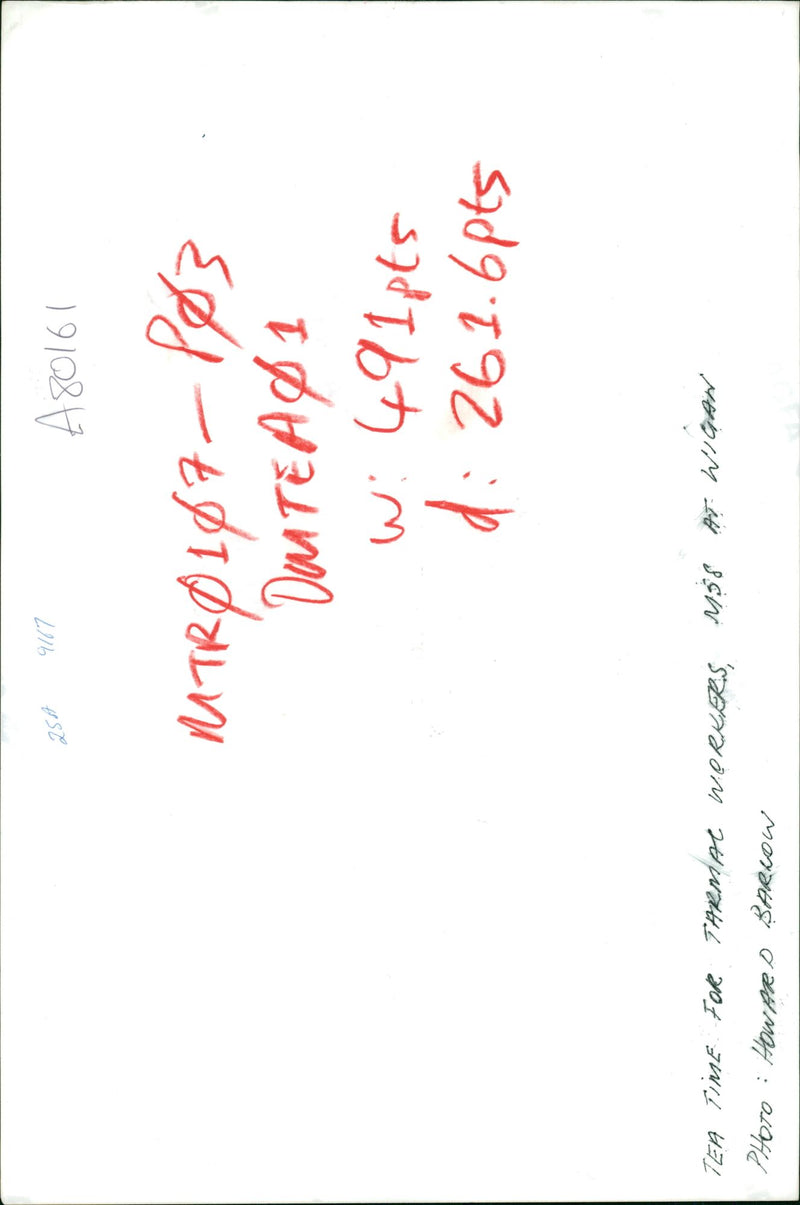 A80161
25A 9167
MTRØ1Ø7-PØ3
DMTEAØ1
w: 491pts
d: 261.6pts
TEA TIME FOR TARMAC WORKERS, M58 AT WIGAN
PHOTO: HOWARD BARLOW